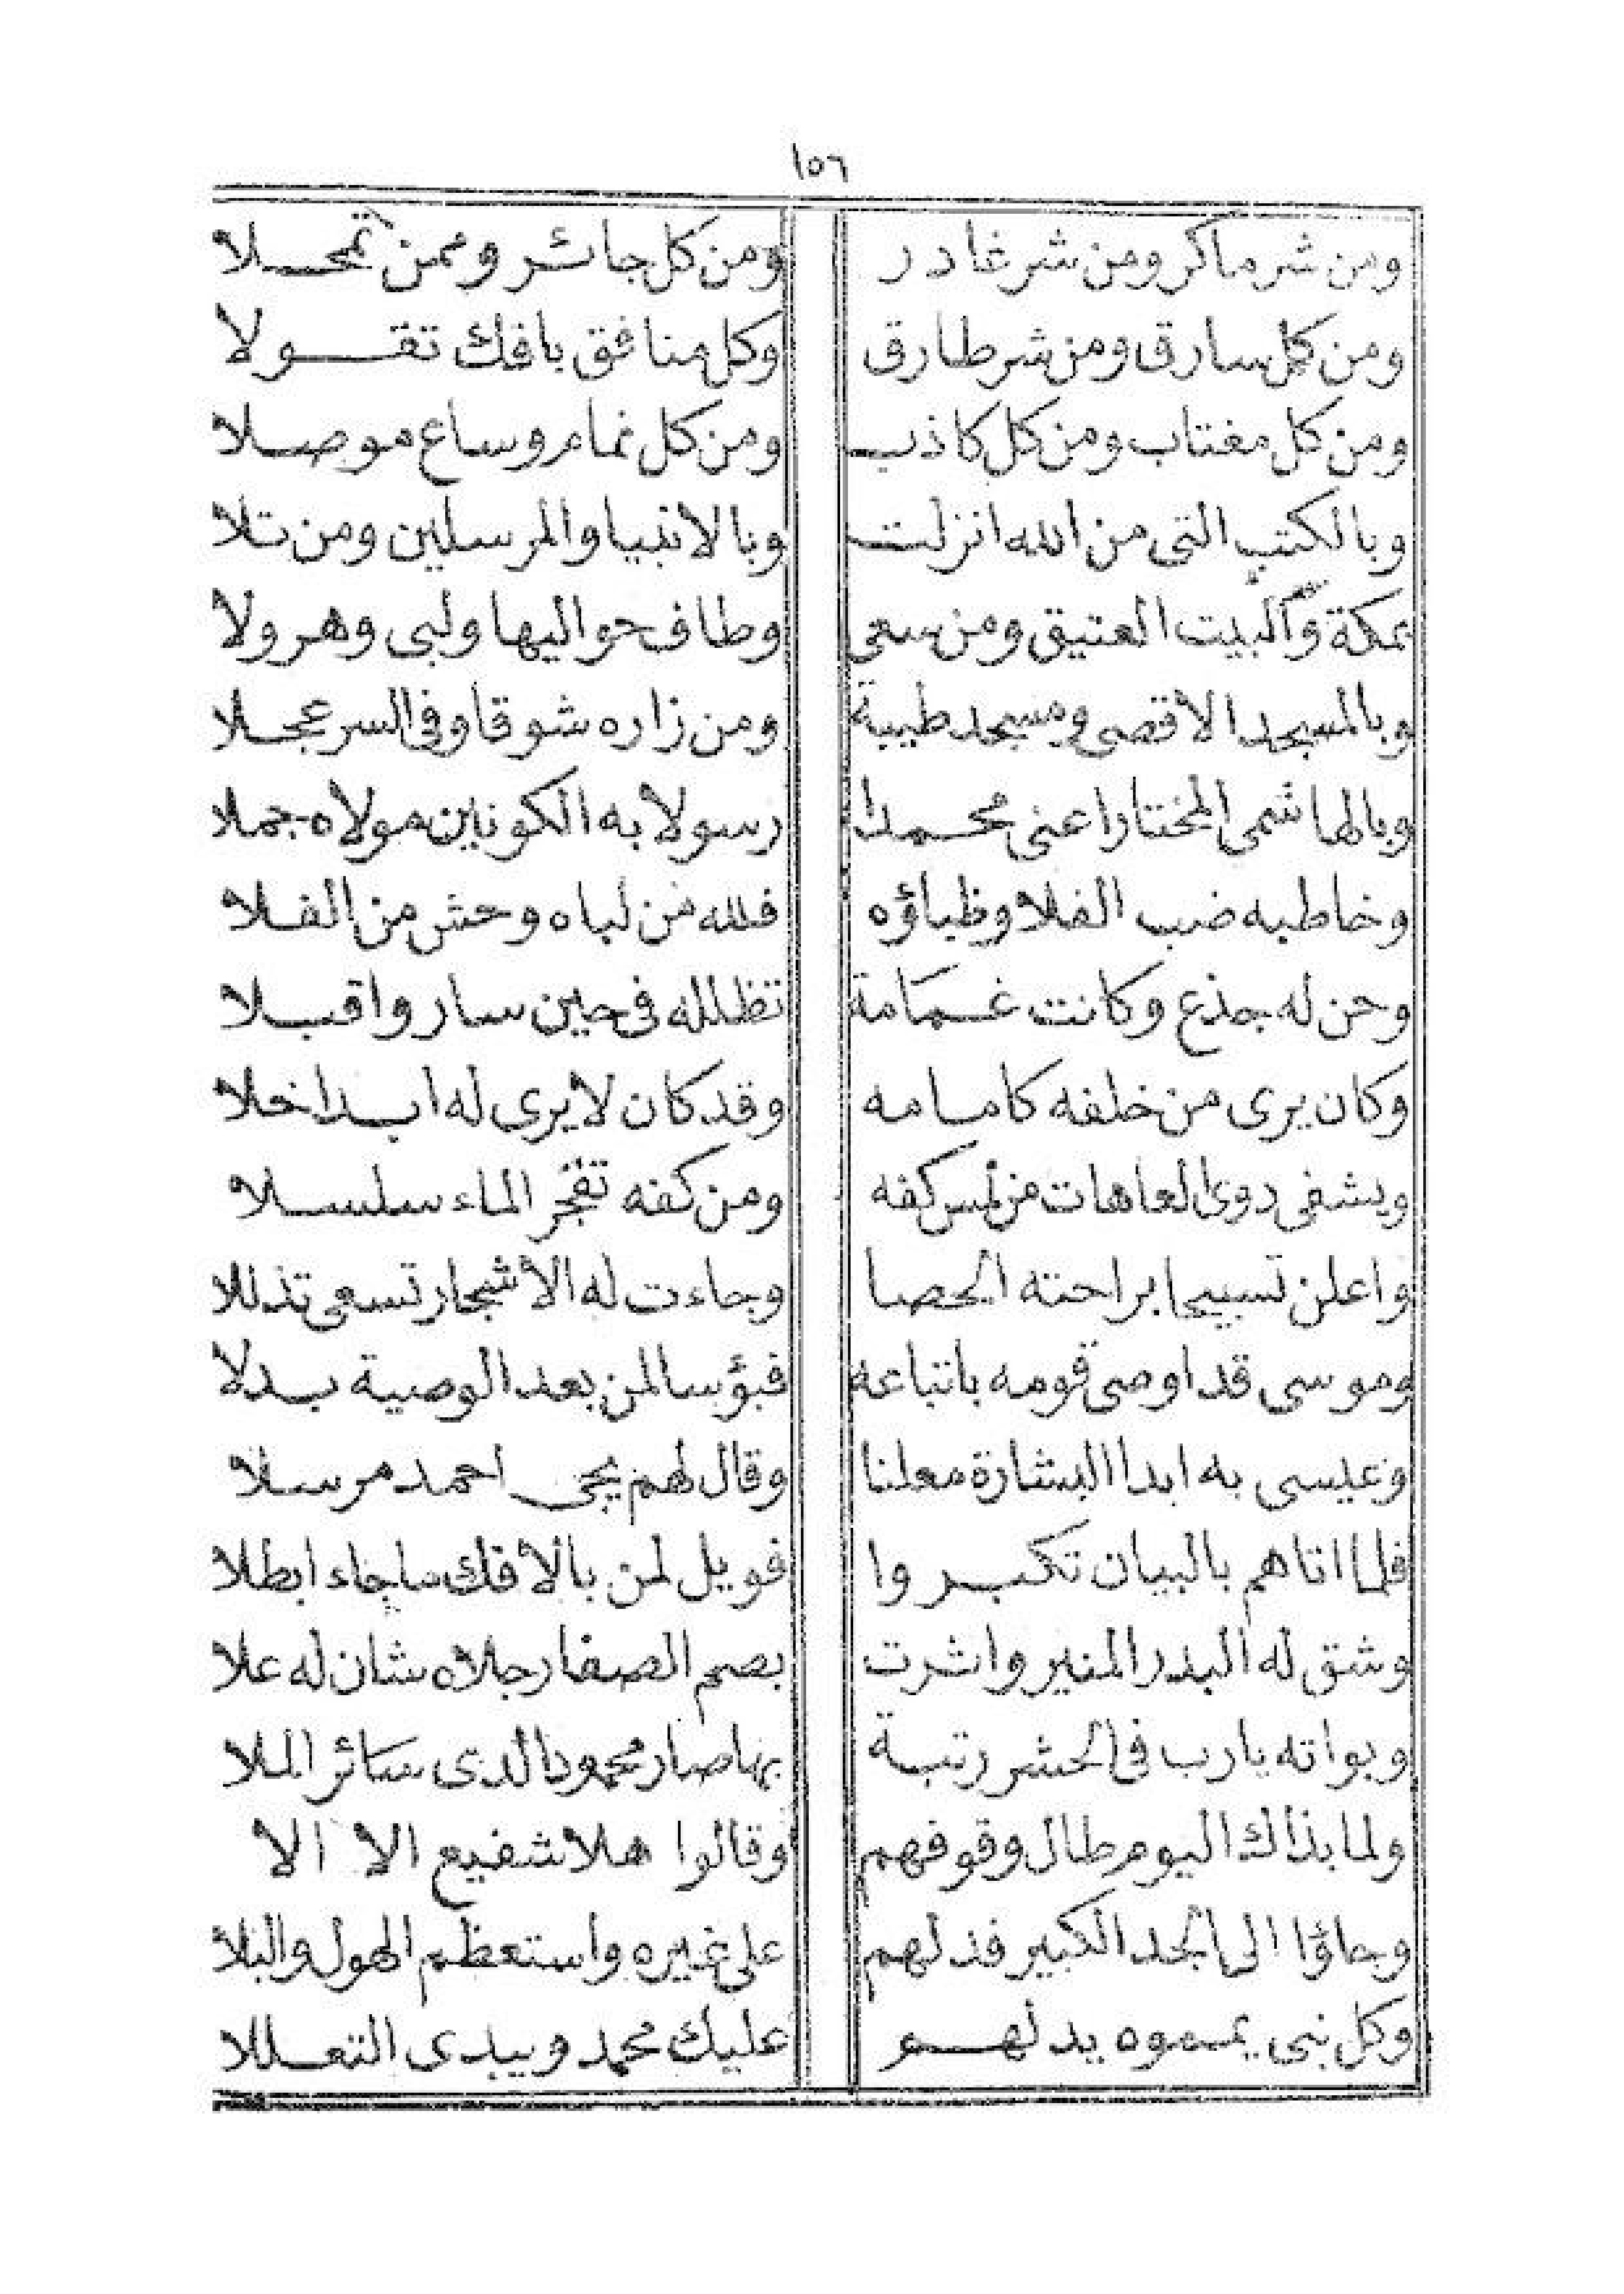 ١٥٦
ومن شر ماكر ومن شر غادر ومن كل جائر وممن تمحلا
ومن كل سارق ومن شر طارق وكل منافق بافك تقولا
ومن كل مغتاب ومن كل كاذب ومن كل نمام وساع موصلا
وبالكتب التى من الله انزلت وبالانبيا والمرسلين ومن تلا
بمكة والبيت العتيق ومن سعى وطاف حواليها ولبى وهرولا
وبالمسجد الأقصى ومسجد طيبة ومن زاره شوقا وفى السر عجلا
وبالهاشمى المختار اعنى محمدا رسولا به الكونين مولاه جملا
وخاطبه ضب الفلا وظباؤه فلله من لباه وحش من الفلا
وحن له جذع وكانت غمامة تظلله فى حين سار واقبلا
وكان يرى من خلفه كامامه وقد كان لا يرى له ابدا خلا
ويشفى دوى العاهات من لمس كفه ومن كفه تفجر الماء سلسلا
واعلن تسبيحا براحته الحصا وجاءت له الأشجار تسعى تذللا
وموسى قد اوصى قومه باتباعه فبؤسا لمن بعد الوصية بدلا
وعيسى به ابدا البشارة معلنا وقال لهم يجى احمد مرسلا
فلما اتاهم بالبيان تكبروا فويل لمن بالافك ما جاء ابطلا
وشق له البدر المنير واثرت بصم الصفا رجلاه شان له علا
وبواته يارب فى الحشر رتبة بها صار محمودا لدى سائر الملا
ولما بذاك اليوم طال وقوفهم وقالوا هلا شفيع الا الا
وجاؤا الى الجد الكبير فدلهم على غيره واستعظم الهول والبلا
وكل نبى يمموه يدلهم عليك محمد ويبدى التعللا